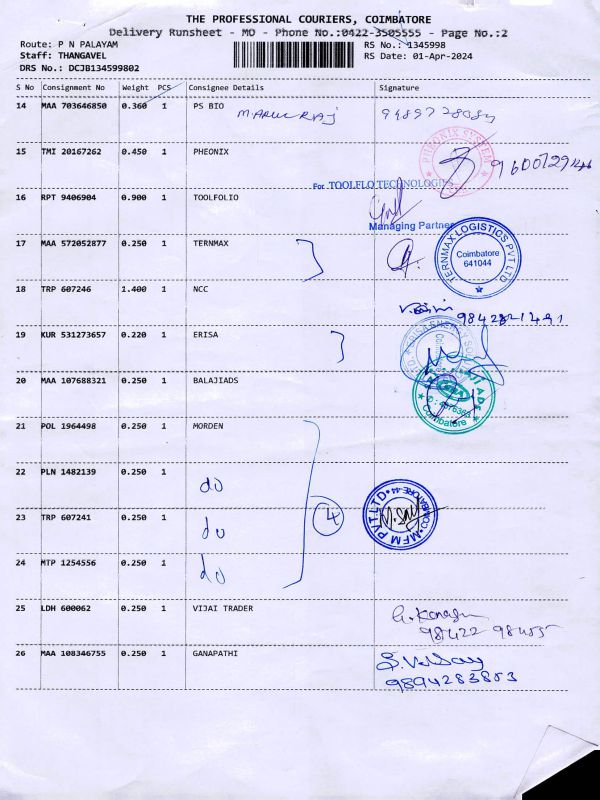 THE PROFESSIONAL COURIERS, COIMBATORE
Delivery Runsheet - MO - Phone No.:0422-3505555 - Page No.:2
Route: P N PALAYAM RS No.: 1345998
Staff: THANGAVEL RS Date: 01-Apr-2024
DRS No.: DCJB134599802
S No Consignment No Weight PCS Consignee Details Signature
14 MAA 703646850 0.360 1 PS BIO
15 TMI 20167262 0.450 1 PHEONIX
PHEONIX SYSTEM
For TOOLFLO TECHNOLOGIES
16 RPT 9406904 0.900 1 TOOLFOLIO
Managing Partner
17 MAA 572052877 0.250 1 TERNMAX
TERNMAX LOGISTICS PVT LTD
Coimbatore
641044
18 TRP 607246 1.400 1 NCC
9842821491
19 KUR 531273657 0.220 1 ERISA
20 MAA 107688321 0.250 1 BALAJIADS
Coimbatore
21 POL 1964498 0.250 1 MORDEN
22 PLN 1482139 0.250 1 do
4
MFM PVT.LTD
23 TRP 607241 0.250 1 do
24 MTP 1254556 0.250 1 do
25 LDH 600062 0.250 1 VIJAI TRADER
98422 98455
26 MAA 108346755 0.250 1 GANAPATHI
9894283853